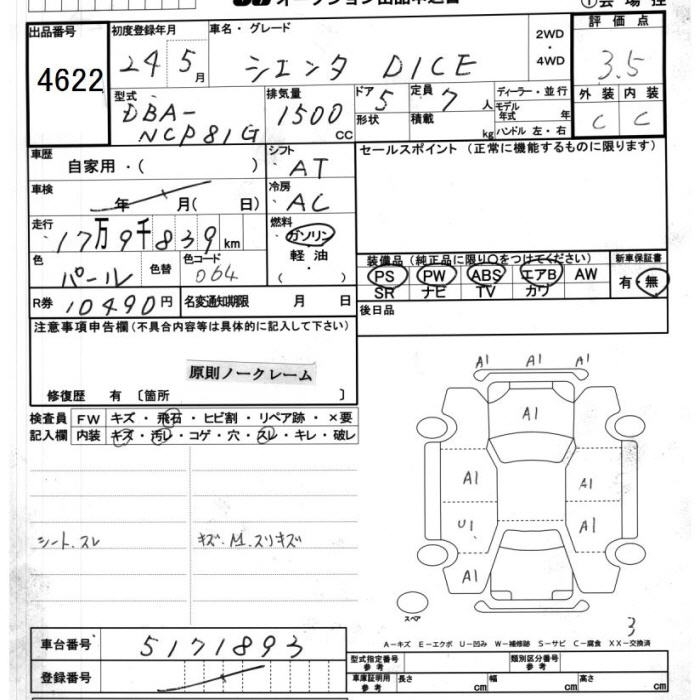 オークション出品申込書
①会場控
出品番号 初度登録年月 車名・グレード 2WD ・ 4WD 評価点
4622 24 5月 シエンタ DICE 3.5
型式 排気量 ドア 定員 ディーラー・並行 外装 内装
DBA-NCP81G 1500 CC 5 7人 モデル年式 年 C C
形状 積載 kg ハンドル 左・右
車歴 シフト セールスポイント (正常に機能するものに限ります)
自家用・( ) AT
車検 冷房
年 月( 日) AC
走行 燃料
17万9千839km ガソリン
色 色替 色コード 軽油
パール 064 ( ・ )
装備品 (純正品に限り○をつけてください) 新車保証書
PS PW ABS エアB AW 有・無
SR ナビ TV カワ
R券 10490円 名変通知期限 月 日 後日品
注意事項申告欄(不具合内容等は具体的に記入して下さい)
原則ノークレーム
修復歴 有 〔箇所 〕
検査員 FW キズ・飛石・ヒビ割・リペア跡・×要
記入欄 内装 キズ・汚レ・コゲ・穴・スレ・キレ・破レ
シート.スレ キズ.M.スリキズ
A1 A1 A1
A1
A1 A1
U1 A1
A1
スペア
3
A-キズ E-エクボ U-凹み W-補修跡 S-サビ C-腐食 XX-交換済
車台番号 5171893
型式指定番号 参考 類別区分番号 参考
登録番号
車庫証明用 参考 長さ cm 幅 cm 高さ cm